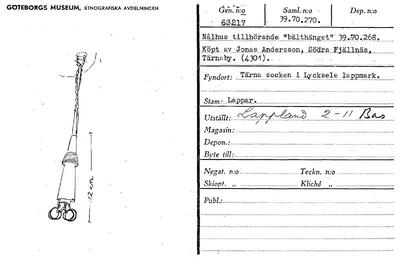 GÖTEBORGS MUSEUM, ETNOGRAFISKA AVDELNINGEN
Gen. n:o
63217
Saml. n:o
39.70.270.
Dep. n:o
Nålhus tillhörande "bälthänget" 39.70.268.
Köpt av Jonas Andersson, Södra Fjällnäs,
Tärnaby. (4301).
Fyndort: Tärna socken i Lycksele lappmark.
Stam: Lappar.
Utställt: Lappland 2-11 Bas
Magasin:
Depon.:
Byte till:
Negat. n:o
Teckn. n:o
Skiopt. „
Kliché „
Publ.:
12 cm